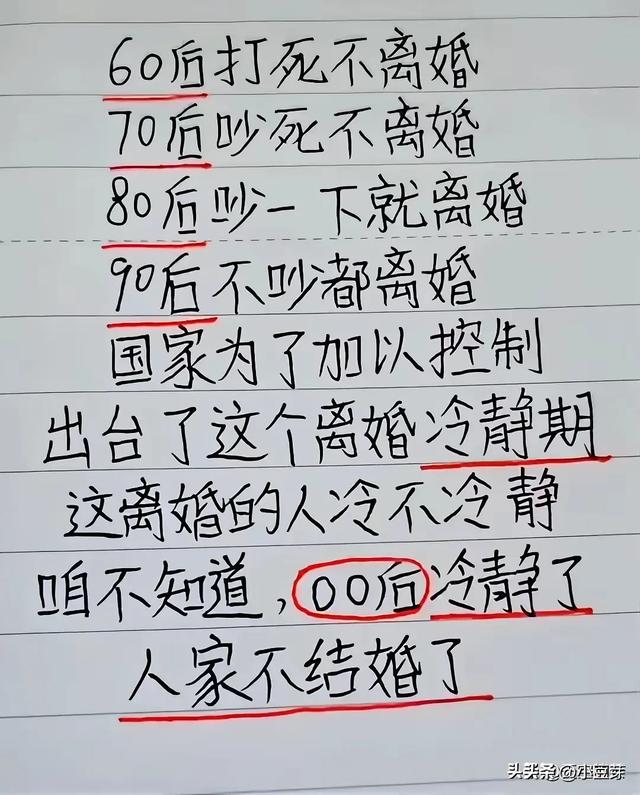 60后打死不离婚
70后吵死不离婚
80后吵一下就离婚
90后不吵都离婚
国家为了加以控制
出台了这个离婚冷静期
这离婚的人冷不冷静
咱不知道,00后冷静了
人家不结婚了
头条@小豆芽